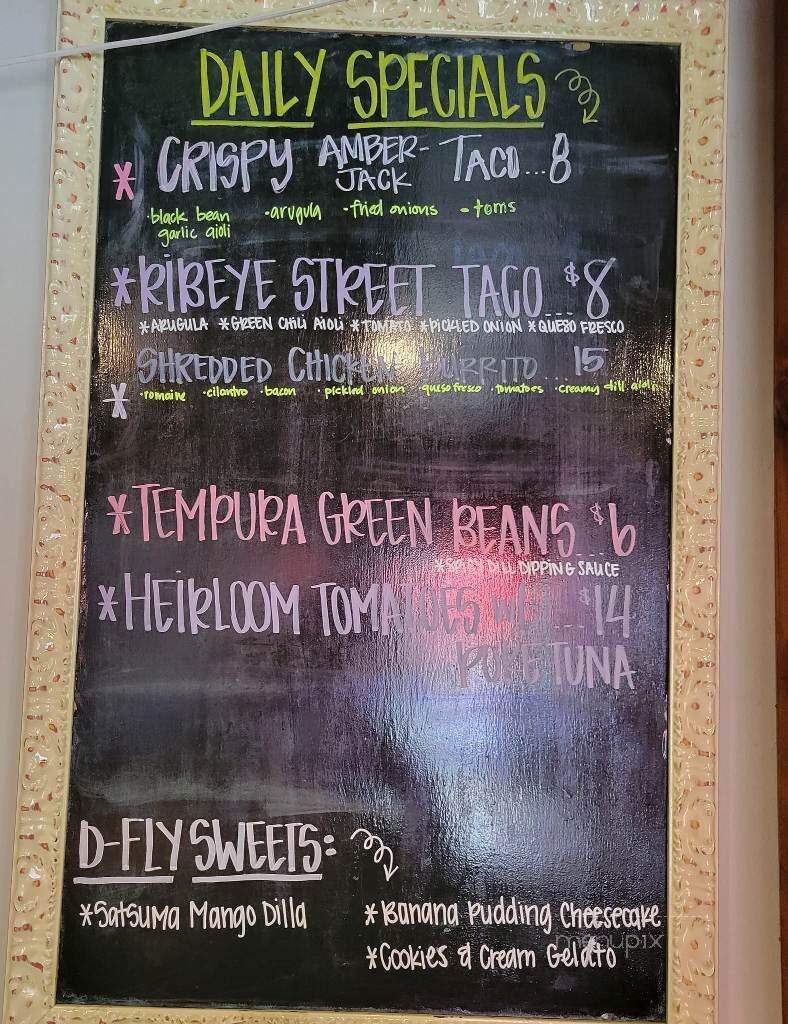 DAILY SPECIALS
* CRISPY AMBER-JACK TACO...8
·black bean garlic aioli ·arugula ·fried onions ·toms
*RIBEYE STREET TACO...$8
*ARUGULA *GREEN CHILI AIOLI *TOMATO *PICKLED ONION *QUESO FRESCO
* SHREDDED CHICKEN BURRITO...15
·romaine ·cilantro ·bacon ·pickled onion ·queso fresco ·tomatoes ·creamy dill aioli
*TEMPURA GREEN BEANS...$6
*SPICY DILL DIPPING SAUCE
*HEIRLOOM TOMATOES ...$14
POKE TUNA
D-FLY SWEETS:
*Satsuma Mango Dilla
*Banana Pudding Cheesecake
*Cookies & Cream Gelato
menupix